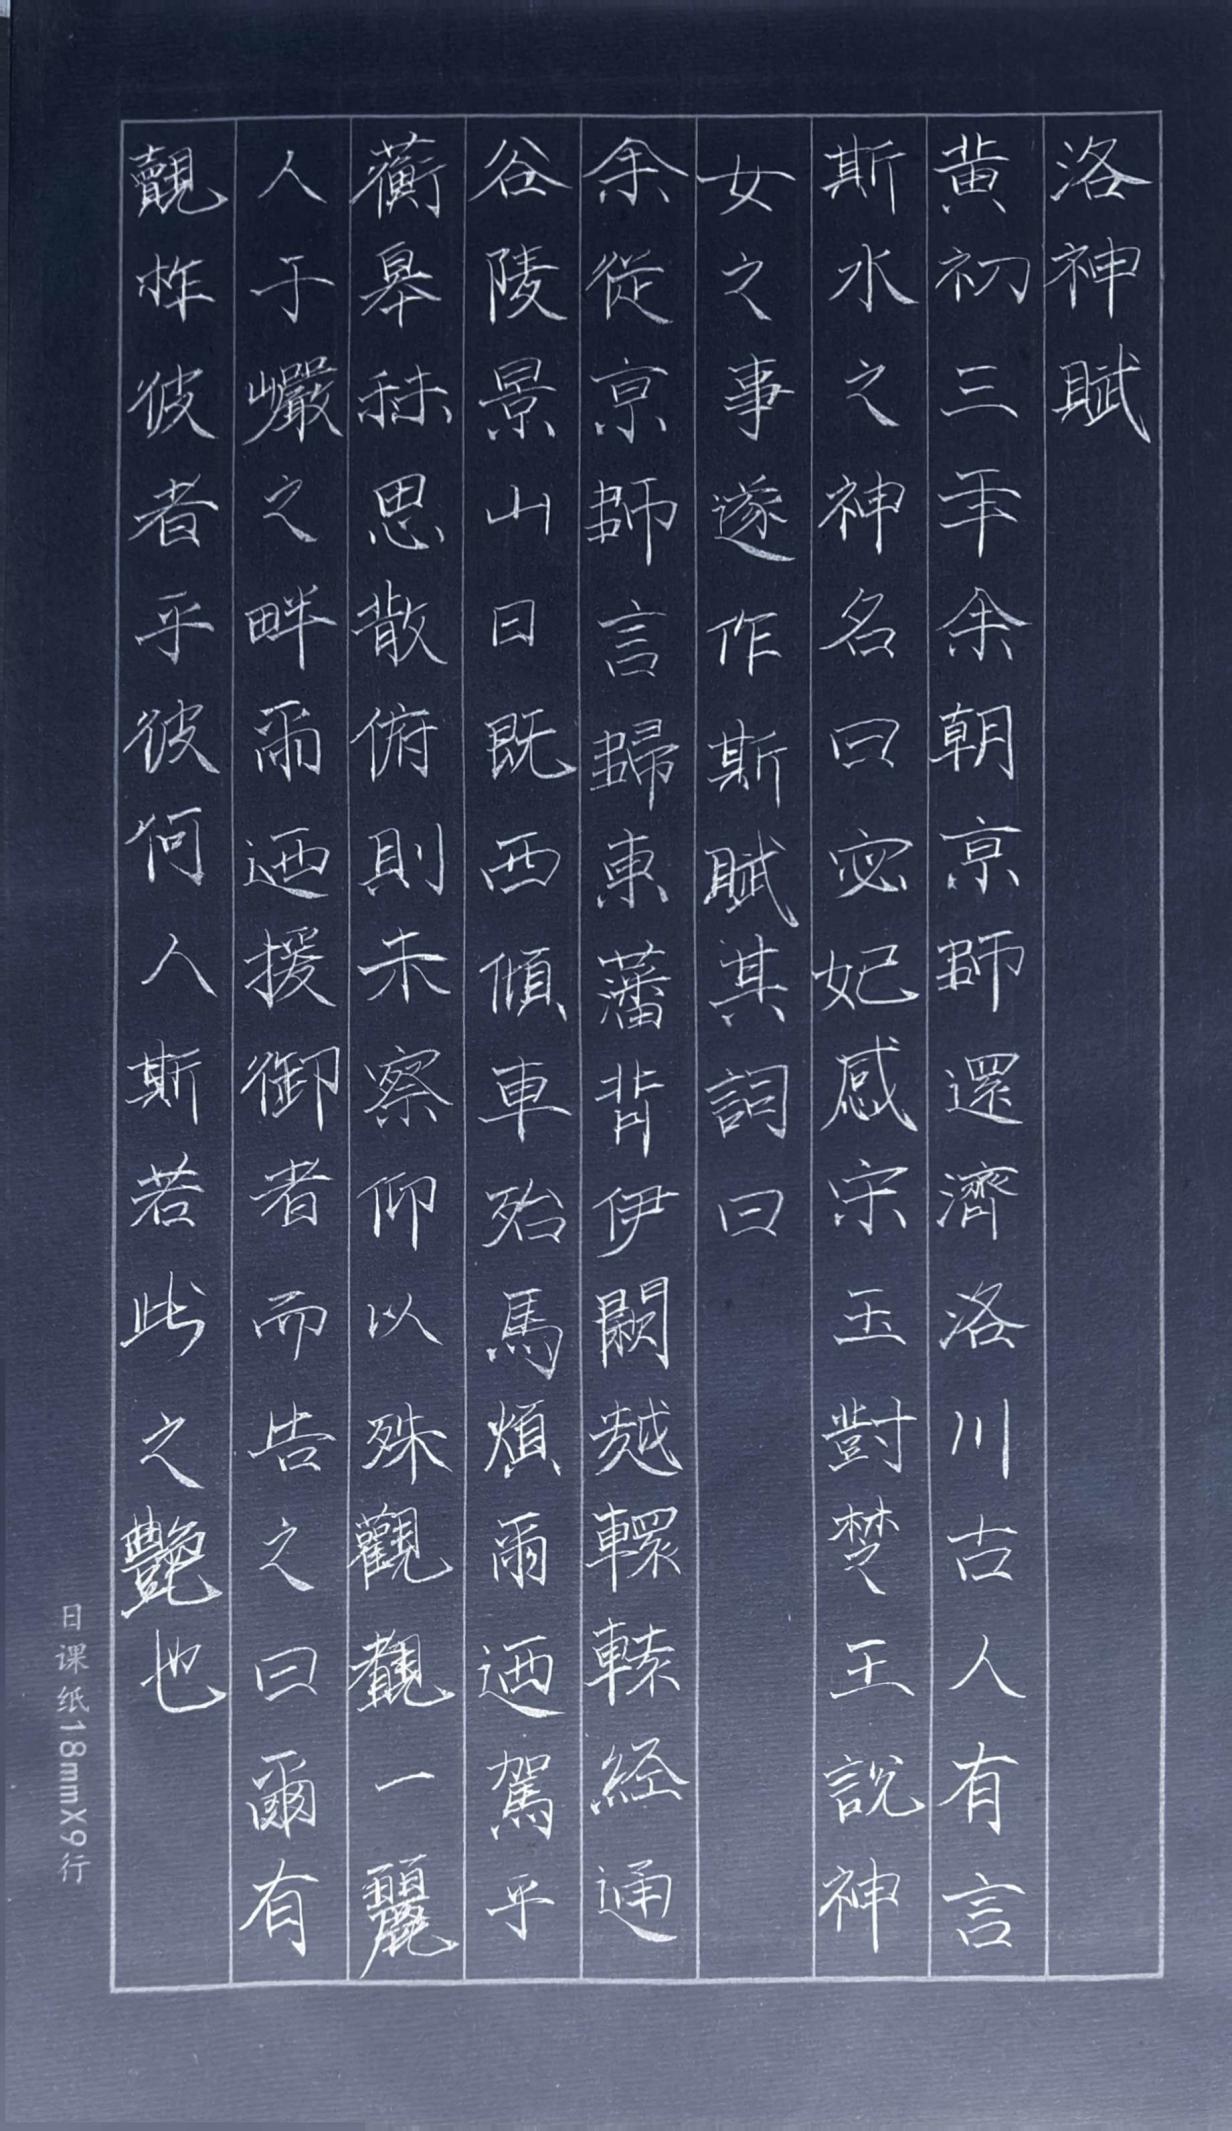 洛神賦
黃初三年余朝京師還濟洛川古人有言
斯水之神名曰宓妃感宋玉對楚王說神
女之事遂作斯賦其詞曰
余從京師言歸東藩背伊闕越轘轅经通
谷陵景山日既西傾車殆馬煩爾迺駕乎
蘅皋秣思散俯則未察仰以殊觀覩一麗
人于巖之畔爾迺援御者而告之曰爾有
覿於彼者乎彼何人斯若此之艷也
日课纸18mmX9行